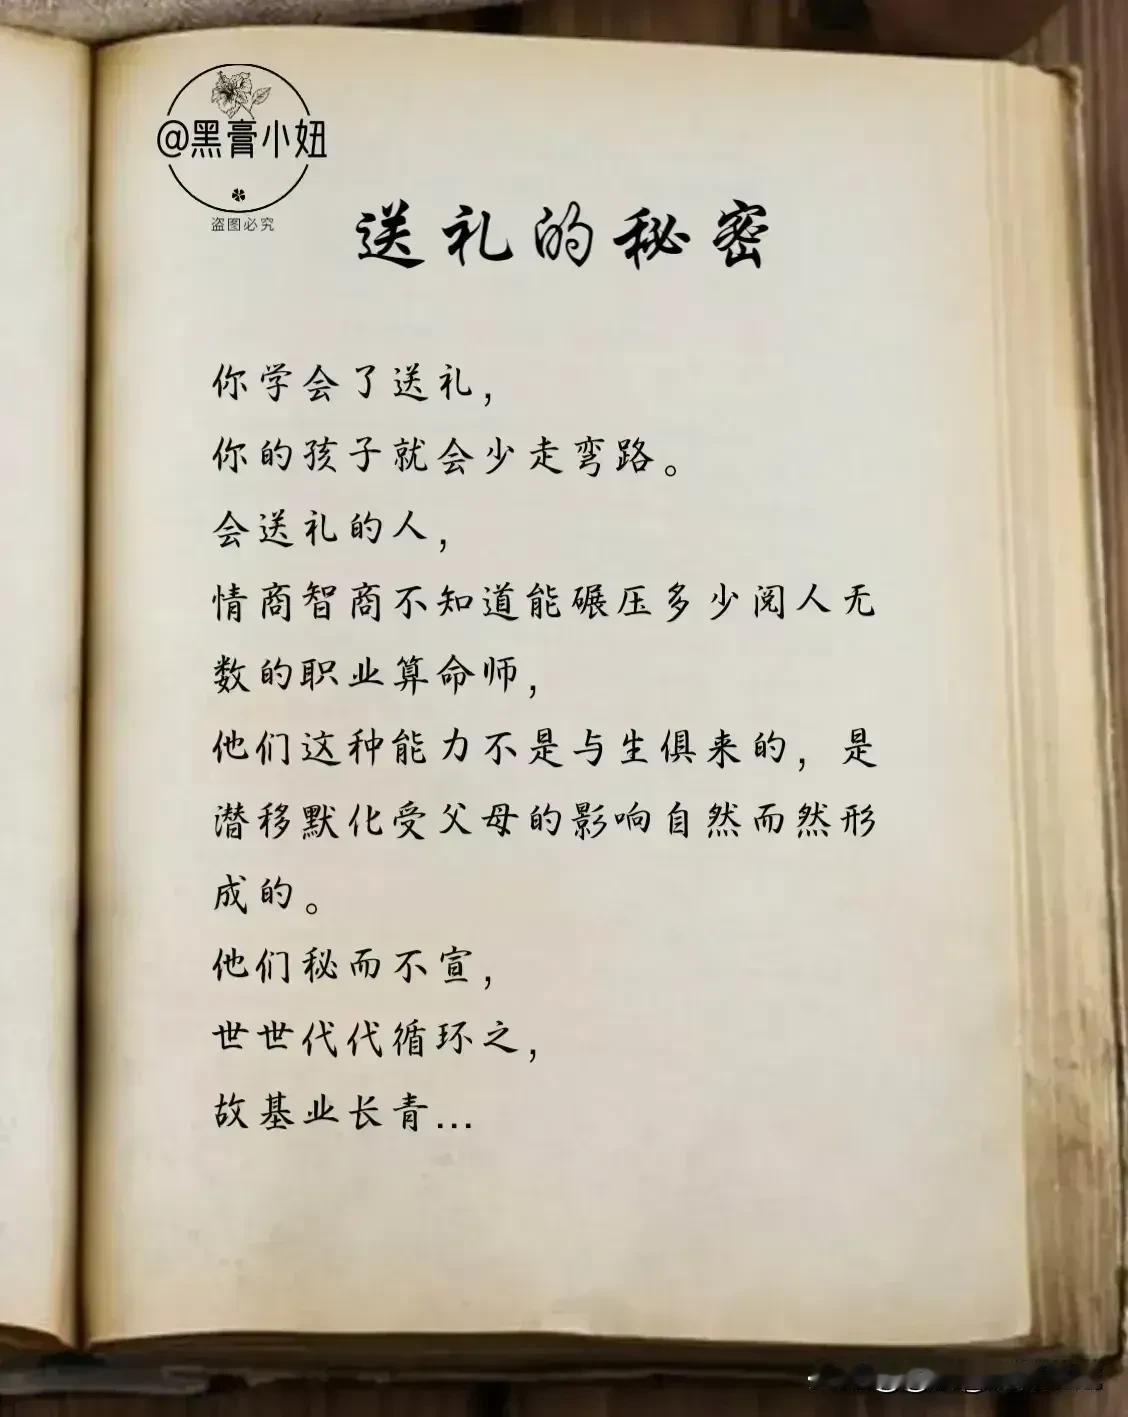 @黑膏小妞
盗图必究
送礼的秘密
你学会了送礼，
你的孩子就会少走弯路。
会送礼的人，
情商智商不知道能碾压多少阅人无
数的职业算命师，
他们这种能力不是与生俱来的，是
潜移默化受父母的影响自然而然形
成的。
他们秘而不宣，
世世代代循环之，
故基业长青...